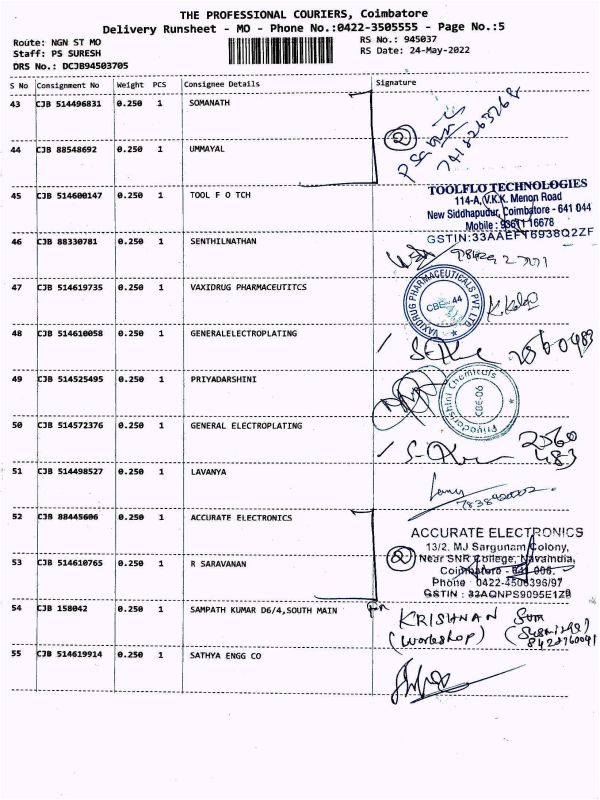 THE PROFESSIONAL COURIERS, Coimbatore
Delivery Runsheet - MO - Phone No.:0422-3505555 - Page No.:5
Route: NGN ST MO
RS No.: 945037
Staff: PS SURESH
RS Date: 24-May-2022
DRS No.: DCJB94503705
S No Consignment No Weight PCS Consignee Details Signature
43 CJB 514496831 0.250 1 SOMANATH
2
44 CJB 88548692 0.250 1 UMMAYAL
45 CJB 514600147 0.250 1 TOOL F O TCH
TOOLFLO TECHNOLOGIES
114-A, V.K.K. Menon Road
New Siddhapudur, Coimbatore - 641 044
Mobile : 93671 16678
GSTIN:33AAEFT6938Q2ZF
46 CJB 88330781 0.250 1 SENTHILNATHAN
47 CJB 514619735 0.250 1 VAXIDRUG PHARMACEUTITCS
VAXIDRUG PHARMACEUTICALS PVT. LTD
CBE-44
48 CJB 514610058 0.250 1 GENERALELECTROPLATING
2560483
49 CJB 514525495 0.250 1 PRIYADARSHINI
Priyadarshini Chemicals
CBE-06
50 CJB 514572376 0.250 1 GENERAL ELECTROPLATING
2560
483
51 CJB 514498527 0.250 1 LAVANYA
52 CJB 88445606 0.250 1 ACCURATE ELECTRONICS
2
ACCURATE ELECTRONICS
13/2, MJ Sargunam Colony,
Near SNR College, Navaindia,
Coimbatore - 641 006.
Phone : 0422-4506396/97
GSTIN : 33AQNPS9095E1Z9
53 CJB 514610765 0.250 1 R SARAVANAN
54 CJB 158042 0.250 1 SAMPATH KUMAR D6/4,SOUTH MAIN
KRISHNAN
(Workshop)
55 CJB 514619914 0.250 1 SATHYA ENGG CO